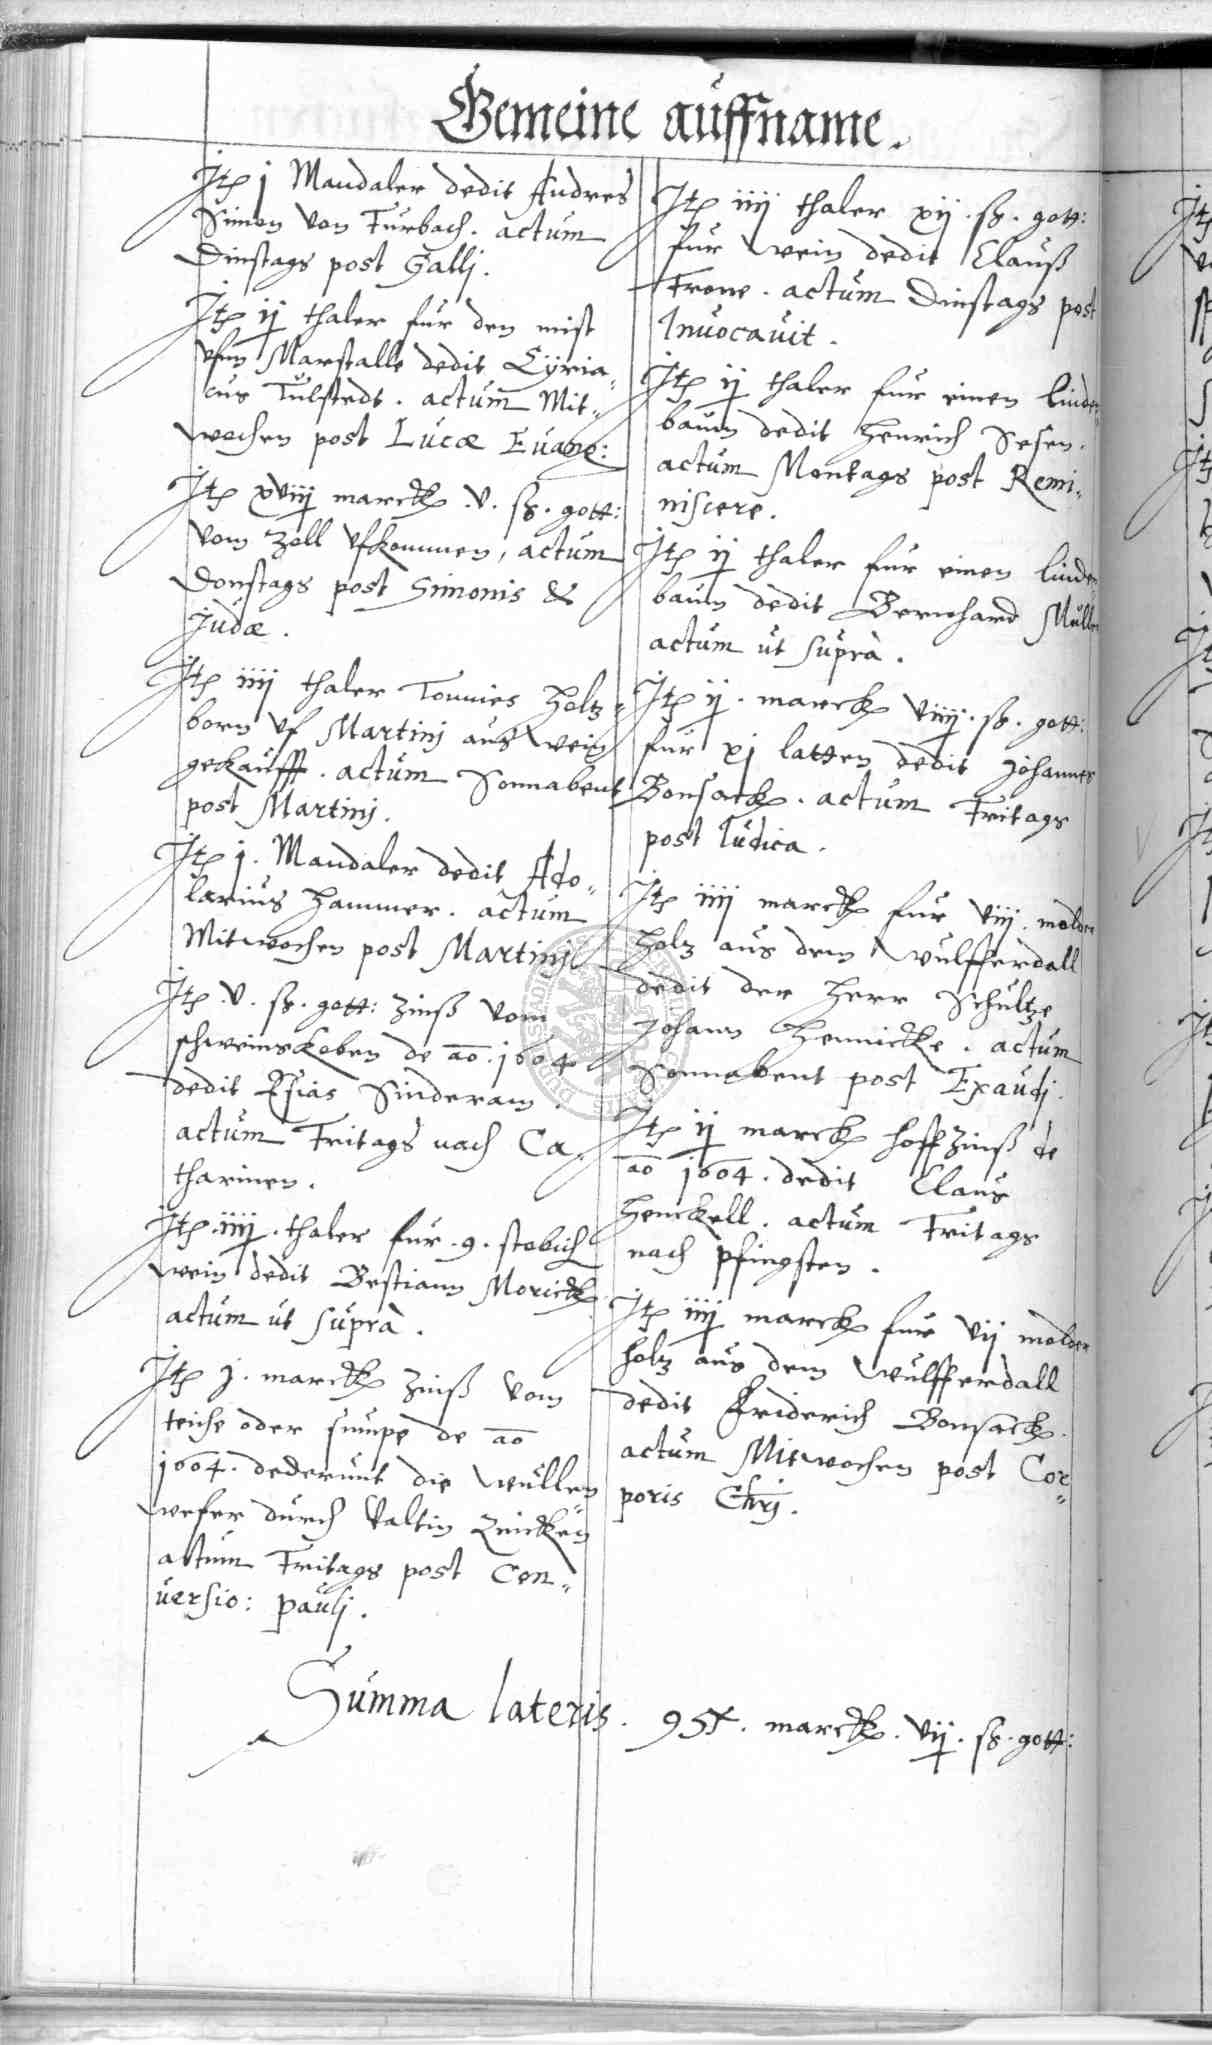 Gemeine auffname.
Itē j Mandaler dedit Andres
Simon von Turbach. actum
Dinstags post Galli.
Itē ij thaler fur den mist
vfm Marstalle dedit Cyria=
cus Tulstedt. actum Mit=
wochen post Lucæ Evang:
Itē xviij marck. v. sz. gott:
vom Zoll vfkommen, actum
Donstags post Simonis &
Judæ.
Itē iiij thaler Tonnies Holtz=
born vf Martinj aus wein
gekaufft. actum Sonnabent
post Martinj.
Itē j. Mandaler dedit Ado=
larius Hammer. actum
Mitwochen post Martinj
Itē .v. sz. gott: zinß vom
schweinskoben de ao. 1604
dedit Esias Sinderam.
actum Fritags nach Ca=
tharinen.
Itē iiij. thaler fur .9. stobich
wein dedit Bestiann Morick
actum ut supra.
Itē j. marck zinß vom
teiche oder sumpe de ao
1604. dederunt die wullen
weser durch Valtin Zuicken
actum Fritags post Con=
versio: pauli.
Itē iiij thaler xij. sz. gott:
fur wein dedit Clauß
Frone. actum Dinstags post
Invocavit.
Itē ij thaler fur einen linden
baum dedit Henrich Sesen.
actum Montags post Remi=
niscere.
Itē ij thaler fur einen linden
baum dedit Bernhard Muller
actum ut supra.
Itē ij. marck viiij. sz. gott:
fur xj latten dedit Johannes
Bonsack. actum Fritags
post Iudica.
Itē iiij marck fur viij. molder
holtz aus dem wulfferdall
dedit der Herr Schultze
Johann Hennicke. actum
Sonnabent post Exaudi.
Itē ij marck hoffzinß de
ao 1604. dedit Claus
Henckell. actum Fritags
nach pfingsten.
Itē iiij marck fur vij molder
holtz aus dem wulfferdall
dedit Friderich Bonsack.
actum Mitwochen post Cor=
poris Chrj.
Summa lateris. 95. marck. vij. sz. gott: